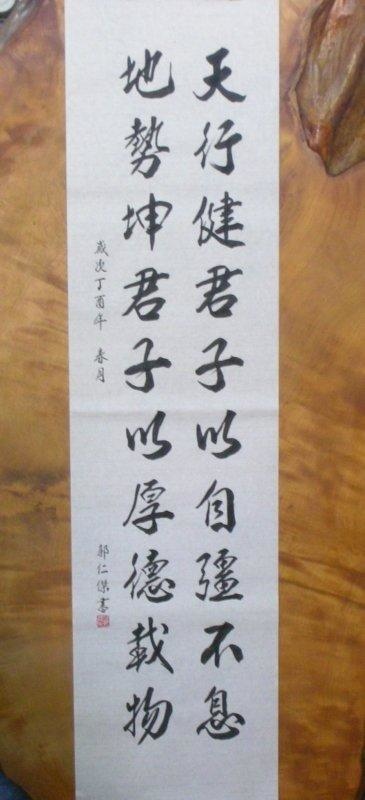 天行健君子以自彊不息
地勢坤君子以厚德載物
歲次丁酉年 春月
郭仁傑書